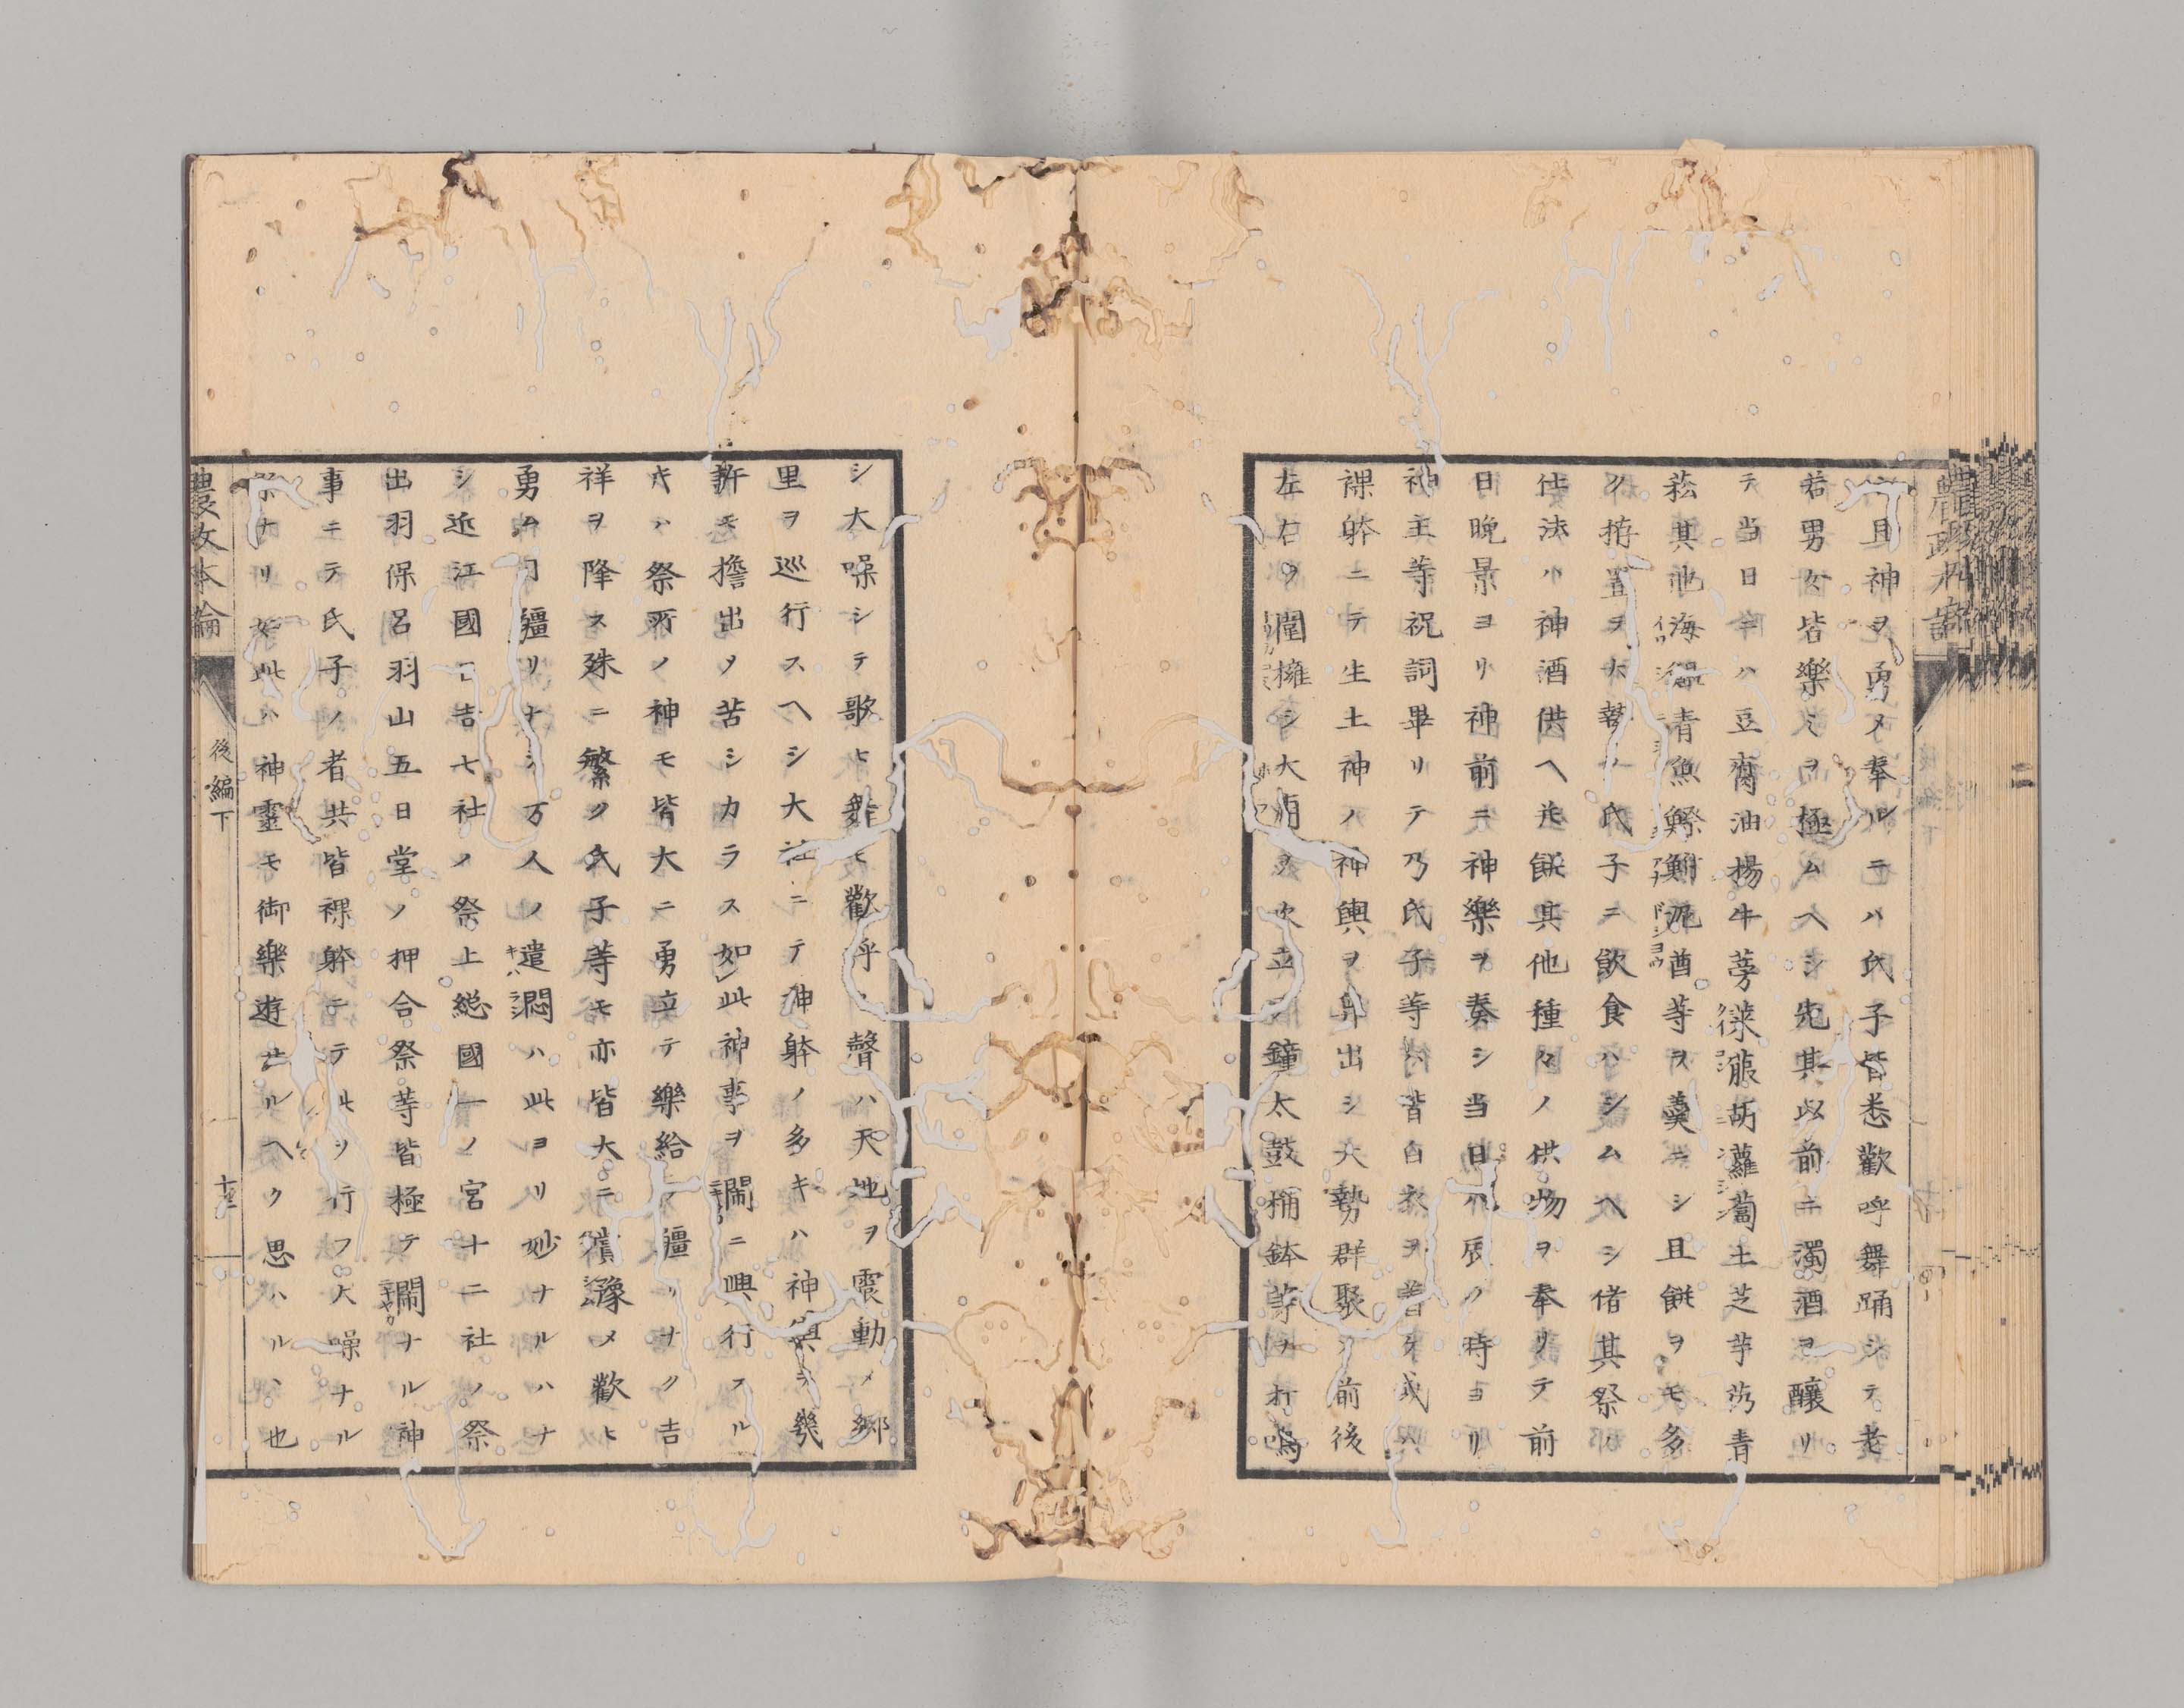 且神ヲ勇メ奉ルニハ氏子皆悉歡呼舞踊シテ老
若男女皆樂ミヲ極ムヘシ先其以前ニ濁酒ヲ釀リ
テ当日ニハ豆腐油揚牛蒡胡蘿蔔土芝芋青
菘其他海青魚等ヲ羹ニシ且餅ヲモ多
ク拵置ヲ大勢ノ氏子ニ飲食ハシムヘシ偖其祭ノ
仕法ハ神酒供ヘ共餅其他種々ノ供物ヲ奉リテ前
日晩景ヨリ神前ニ神樂ヲ奏シ当日ハ辰ノ時ヨリ
神主等祝詞畢リテ乃氏子等皆白衣ヲ着シ或ハ
裸躰ニテ生土神ノ神輿ヲ舁出シ大勢群聚シ前後
左右ヲ圍擁シ大ヲ吹立テ鐘太鼓桶鉢等ヲ打鳴
シ大噪シテ歌ヒ舞モ歡呼ノ聲ハ天地ヲ震動メ郷
里ヲ巡行スヘシ大社ニテ神躰ノ多キハ神輿ヲ幾
許モ擔出メ苦シカラス如此神事ヲ鬧ニ興行スル
キハ祭所ノ神モ皆大ニ勇立テ樂給疆リナク吉
祥ヲ降ス殊ニ繁ク氏子等モ亦皆大ニ豫メ歡ヒ
勇ム疆リナシ万人ノ遣悶ハ此ヨリ妙ナルハナ
シ近江國日吉七社ノ祭上総國一ノ宮十二社ノ祭
出羽保呂羽山五日堂ノ押合祭等皆極テ鬧ナル神
事ニテ氏子ノ者共皆裸躰ニテ行フ大噪ナル
祭ナリ如此ハ神靈モ御樂遊セルヘク思ハルヽ也
農政本論
後編下